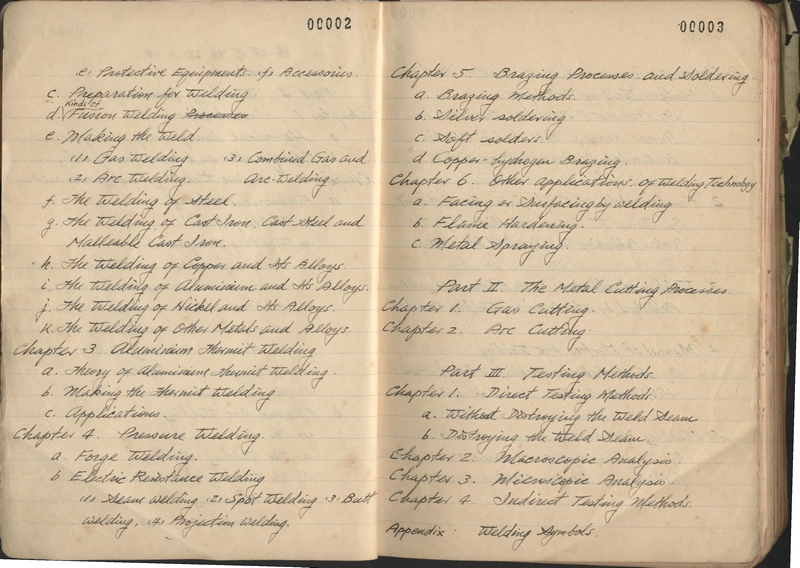 00002
e) Protective Equipments f) Accessories.
c. Preparation for Welding
Kinds of
d. Fusion Welding Processes
e. Making the weld.
(1) Gas Welding (3) Combined Gas and
(2) Arc Welding. Arc-Welding
f. The Welding of Steel.
g. The Welding of Cast Iron, Cast Steel and
Malleable Cast Iron.
h. The Welding of Copper and Its Alloys.
i. The Welding of Aluminium and Its Alloys.
j. The Welding of Nickel and Its Alloys.
k. The Welding of Other Metals and Alloys.
Chapter 3. Aluminium Thermit Welding
a. Theory of Aluminium Thermit Welding.
b. Making the Thermit Welding.
c. Applications.
Chapter 4. Pressure Welding.
a. Forge Welding.
b. Electric Resistance Welding
(1) Seam Welding (2) Spot Welding (3) Butt
Welding, (4) Projection Welding.
00003
Chapter 5. Brazing Processes and Soldering.
a. Brazing Methods.
b. Silver soldering.
c. Soft solders.
d. Copper-hydrogen Brazing.
Chapter 6. Other Applications of Welding Technology
a. Facing or Surfacing by welding
b. Flame Hardening.
c. Metal Spraying.
Part II. The Metal Cutting Processes.
Chapter 1. Gas Cutting.
Chapter 2. Arc Cutting.
Part III. Testing Methods.
Chapter 1. Direct Testing Methods.
a. Without Distroying the Weld Seam
b. Distroying the Weld Seam
Chapter 2. Macroscopic Analysis.
Chapter 3. Microscopic Analysis.
Chapter 4. Indirect Testing Methods.
Appendix: Welding Symbols.